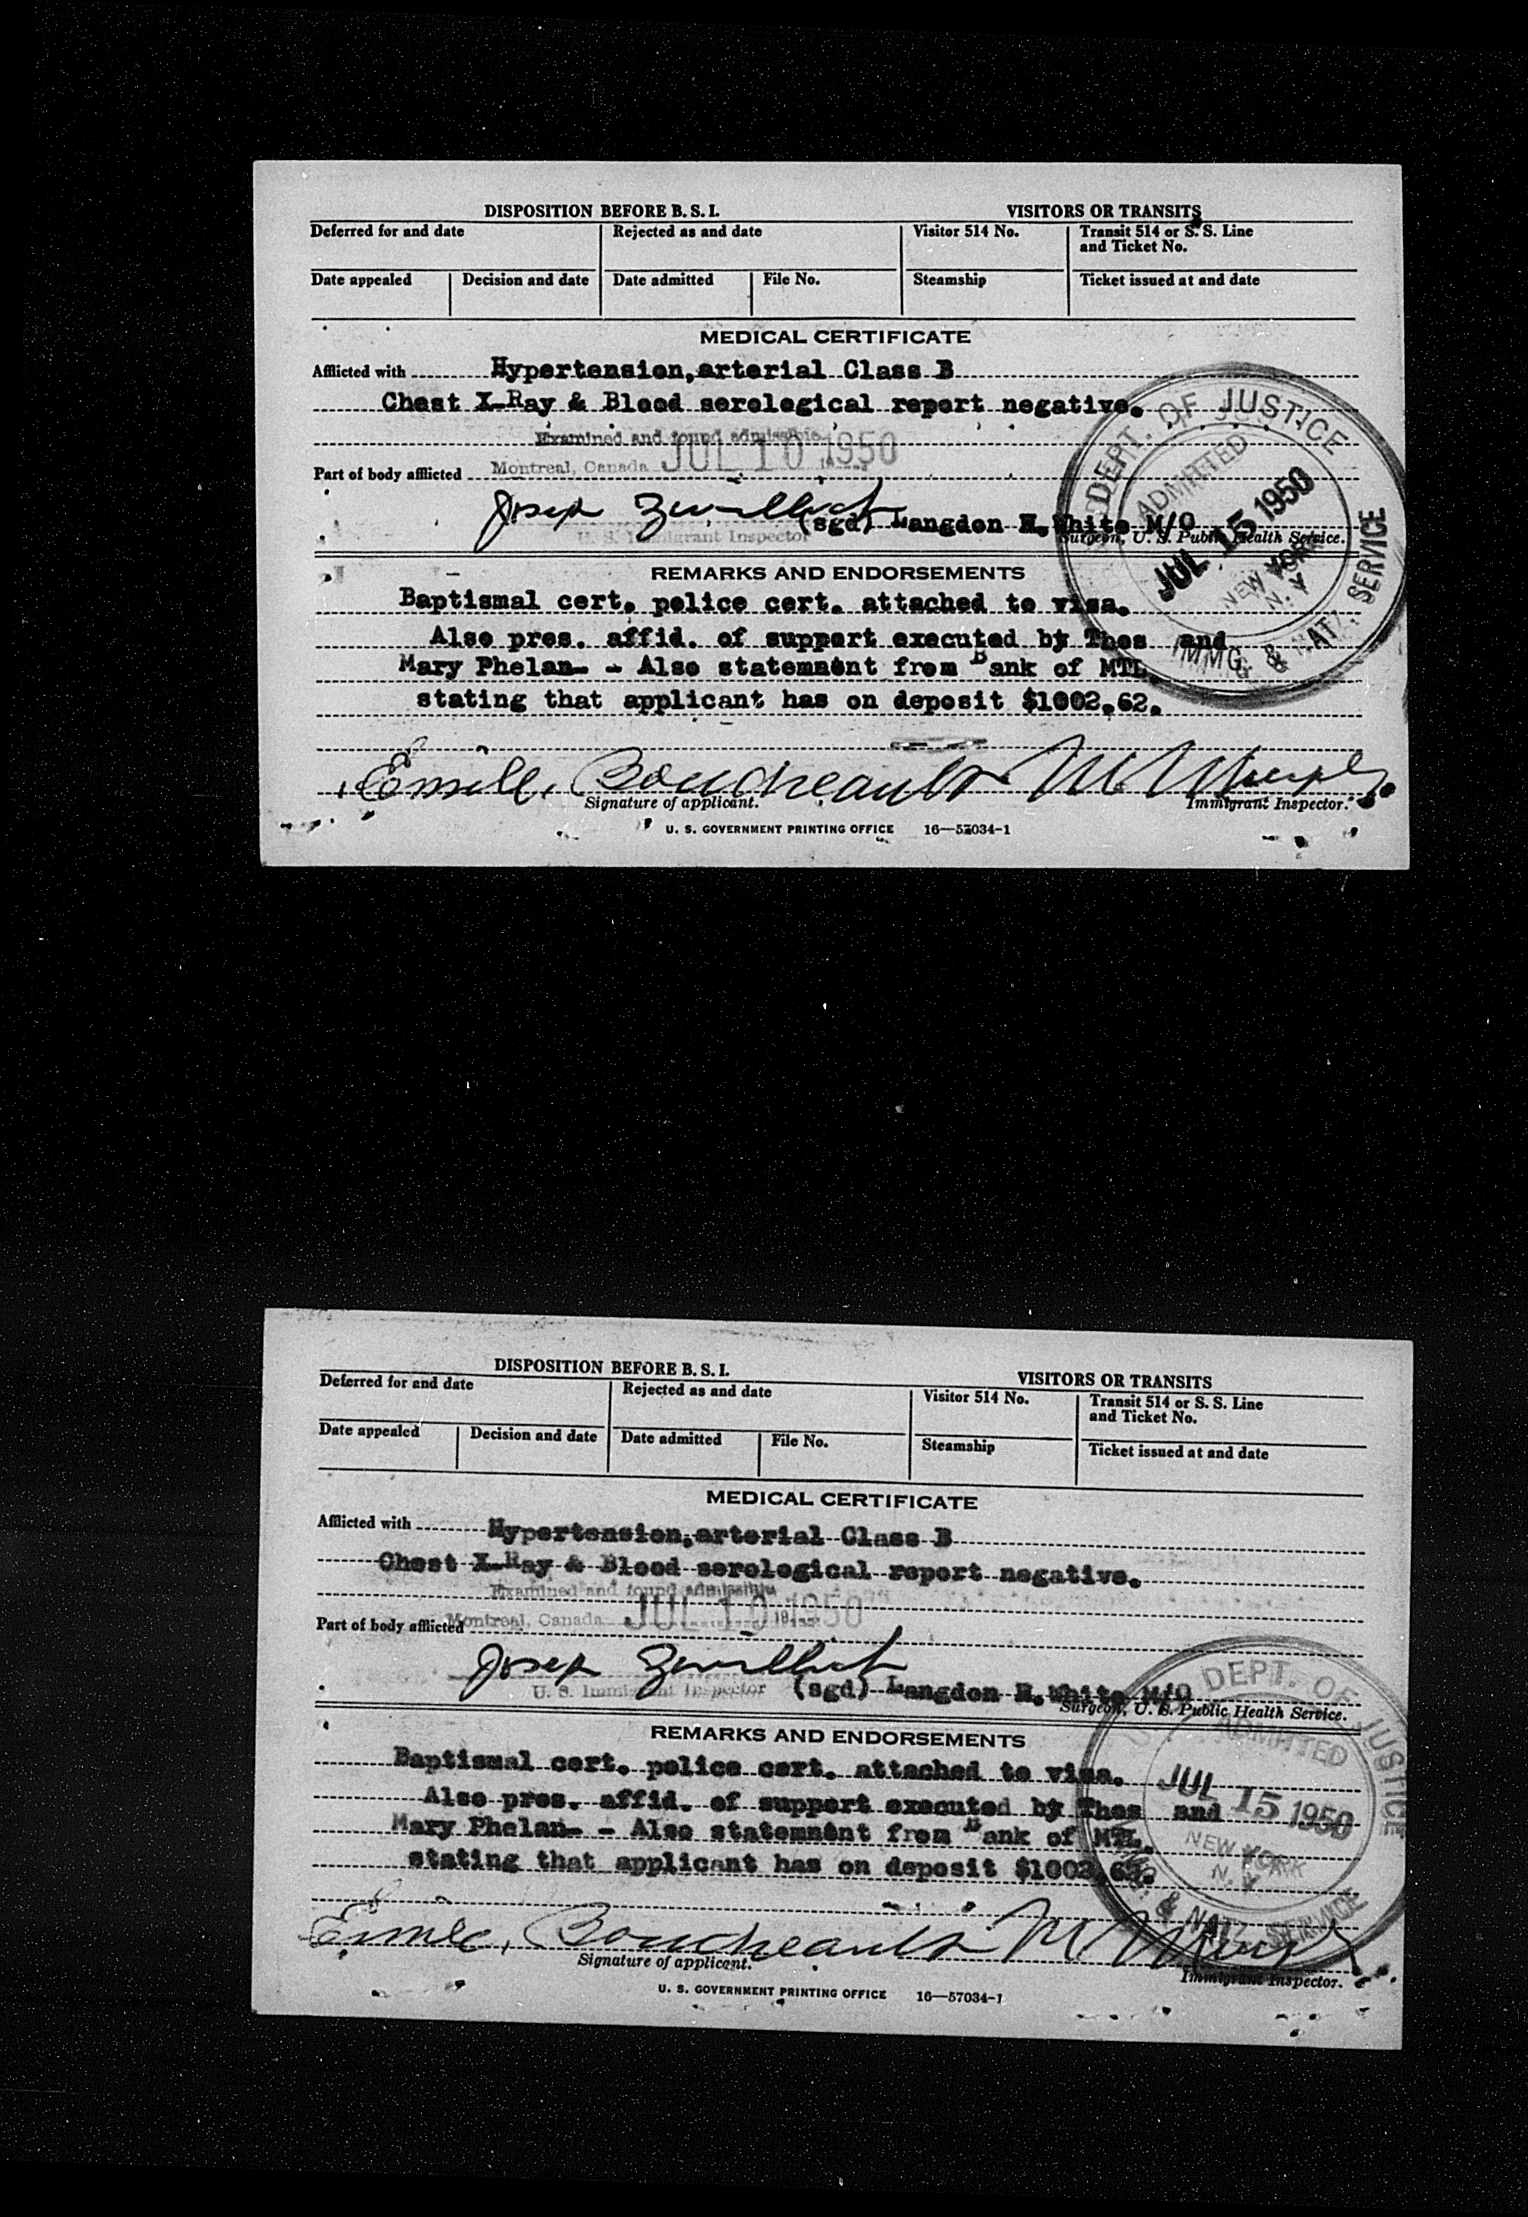 DISPOSITION BEFORE B. S. I.
VISITORS OR TRANSITS
Deferred for and date
Rejected as and date
Visitor 514 No.
Transit 514 or S. S. Line
and Ticket No.
Date appealed
Decision and date
Date admitted
File No.
Steamship
Ticket issued at and date
MEDICAL CERTIFICATE
Afflicted with Hypertension, arterial Class B
Chest X-Ray & Blood serological report negative.
Examined and found admissible
Part of body afflicted Montreal, Canada JUL 10 1950
Joseph
(sgd) Langdon H. White M/O
U. S. Immigrant Inspector
Surgeon, U. S. Public Health Service.
DEPT. OF JUSTICE
ADMITTED
JUL 15 1950
NEW YORK
N. Y
IMMG. & NATZ. SERVICE
REMARKS AND ENDORSEMENTS
Baptismal cert. police cert. attached to visa.
Also pres. affid. of support executed by Thos and
Mary Phelan- - Also statemnént from Bank of MTL.
stating that applicant has on deposit $1002.62.
Emile Boudreault M Murphy
Signature of applicant.
Immigrant Inspector.
U. S. GOVERNMENT PRINTING OFFICE 16—57034-1
DISPOSITION BEFORE B. S. I.
VISITORS OR TRANSITS
Deferred for and date
Rejected as and date
Visitor 514 No.
Transit 514 or S. S. Line
and Ticket No.
Date appealed
Decision and date
Date admitted
File No.
Steamship
Ticket issued at and date
MEDICAL CERTIFICATE
Afflicted with Hypertension, arterial Class B
Chest X-Ray & Blood serological report negative.
Examined and found admissible
Part of body afflicted Montreal, Canada JUL 10 1950
Joseph
U. S. Immigrant Inspector
(sgd) Langdon H. White M/O
Surgeon, U. S. Public Health Service.
DEPT. OF JUSTICE
ADMITTED
JUL 15 1950
NEW YORK
N. Y
& NATZ. SERVICE
REMARKS AND ENDORSEMENTS
Baptismal cert. police cert. attached to visa.
Also pres. affid. of support executed by Thos and
Mary Phelan- - Also statemnént from Bank of MTL.
stating that applicant has on deposit $1002.62.
Emile Boudreault M Murphy
Signature of applicant.
Immigrant Inspector.
U. S. GOVERNMENT PRINTING OFFICE 16—57034-1